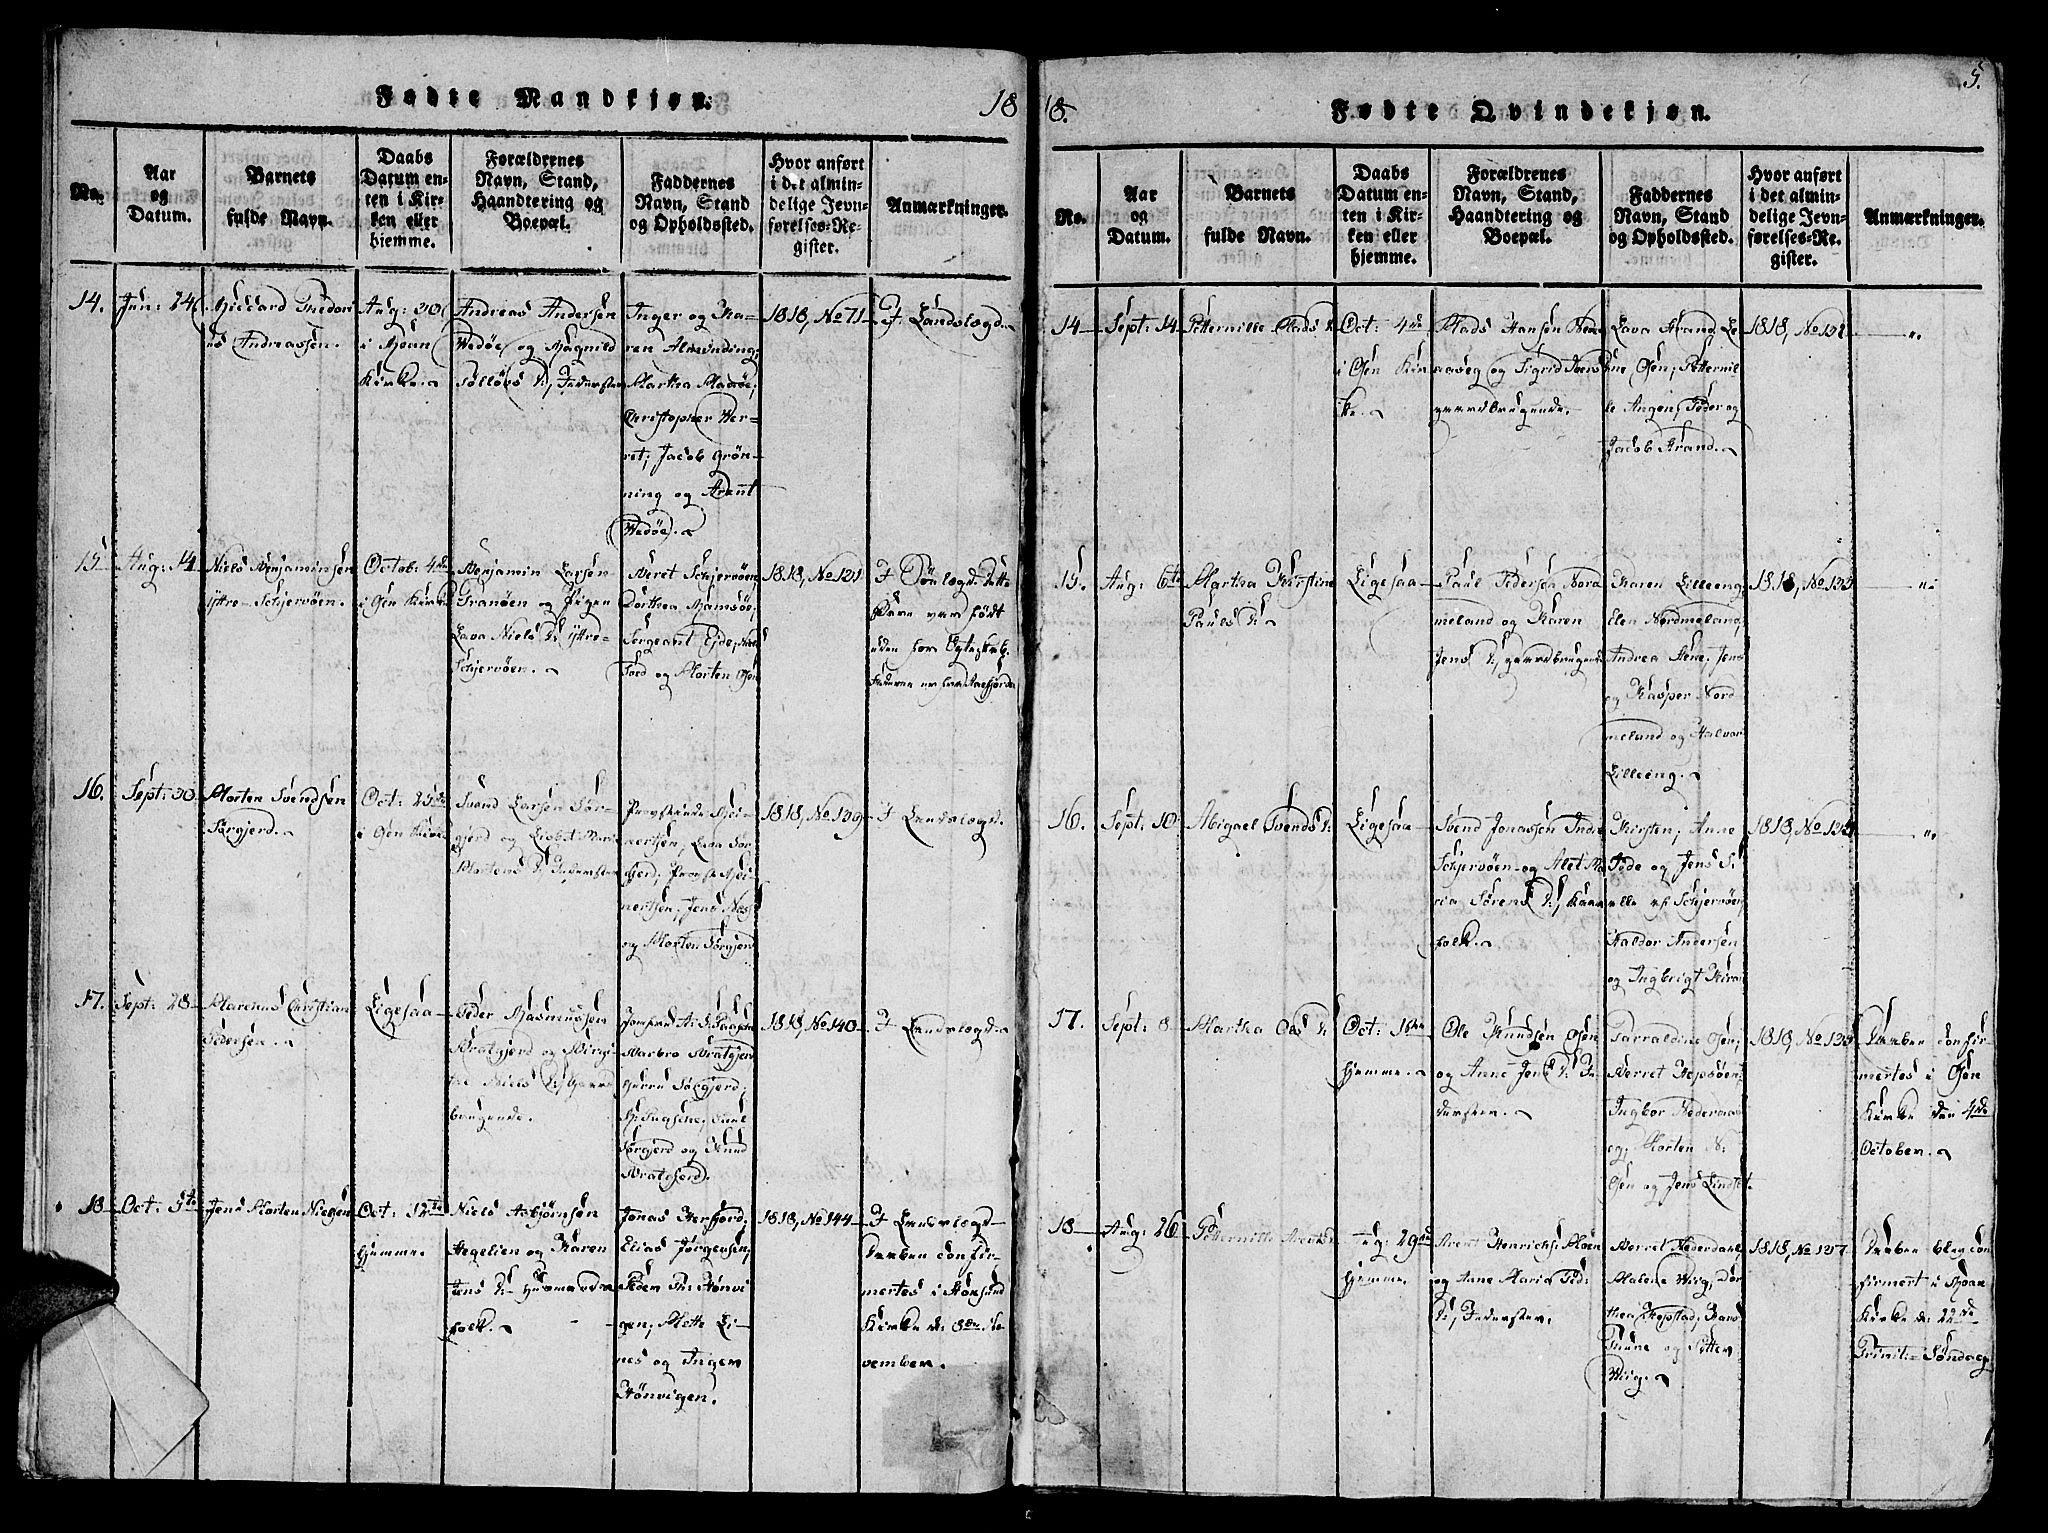 Fødte Mandkjøn.
18
No.
Aar
og
Datum.
Barnets
fulde Navn.
Daabs
Datum en-
ten i Kir-
ken eller
hjemme.
Forældrenes
Navn, Stand,
Haandtering og
Boepæl.
Faddernes
Navn, Stand
og Opholdssted.
Hvor anført
i det almin-
delige Jevn-
førelses-Re-
gister.
Anmærkninger.
14.
Jun: 24
Andreassen.
Aug: 30
Kirke.
Andreas Andersen
Wedøe og Magnild
Inger og Ka-
ren Almending;
Martha
Christopher Ber-
ret; Jacob Grøn-
ning og Arent
Wedøe.
1818, No 71
F. Landslægd.
15
Aug: 14
Niels Benjaminsen
Yttre-Schjervøen.
Octob: 4de
i Osen Kirke
Benjamin Larsen
Granøen og Pigen
Lava Niels D: Yttre-
Schjervøen.
Beret Schjervøen
Dorthea Ramsøe;
Sergeant Eide,
og Morten Osen
1818, No 131
F Søelægd. Dette
Barn var født
uden for Egteskab.
16.
Sept: 30
Morten Svendsen
Sørgjerd.
Oct: 25de
i Osen Kirke
Svend Larsen Sør-
gjerd og Lisbet Marie
Mortens D:
nertsen, Lava Sør-
gjerd;
nertsen, Jens Næs
og Morten Sørgjerd
1818, No 139
F Landslægd.
17.
Sept: 28
Marenus Christian
Pedersen.
Ligesaa
Peder Rasmussen
Bratgjerd og Birgi-
the Niels D: Gaard-
brugende.
Jomfrue A: S: Paasche
Barbro Bratgjerd
Sørgjerd;
H: Paasche, Paul
Sørgjerd og Knud
Bratgjerd.
1818, No 140
F Landslægd.
18
Oct: 5te
Jens Morten Nielsen
Oct: 12te
hjemme.
Niels Asbjørnsen
Hegelien og Karen
Jens D: Huusmands-
folk.
Jonas Herfjord;
Elias Jørgensen,
Peder P: Hønvi-
gen; Mette Li-
nes og Inger
Hønvigen.
1818, No 144
F Landslægd
Daaben confir-
mertes i Stoksund
Kirke d: 8de No-
vember.
18.
Fødte Qvindekjøn.
5.
No.
Aar
og
Datum.
Barnets
fulde Navn.
Daabs
Datum en-
ten i Kir-
ken eller
hjemme.
Forældrenes
Navn, Stand,
Haandtering og
Boepæl.
Faddernes
Navn, Stand
og Opholdssted.
Hvor anført
i det almin-
delige Jevn-
førelses-Re-
gister.
Anmærkninger.
14
Sept: 14
Petternille Mads D:
Oct: 4de
i Osen Kir-
ke.
Mads Hansen
og Sigrid Svens D:
gaardbrugende.
Lava Strand, Le-
ne Osen; Petternil-
le Angen; Peder og
Jacob Strand.
1818, No 132
"
15.
Aug: 6te
Martha Kirstine
Pauls D:
Ligesaa
Paul Pedersen Nord-
meland og Karen
Jens D: gaardbrugende
Karen Lilleeng,
Elen Nordmeland,
Andrea Stene. Jens
og Kasper Nord-
meland og Halvor
Lilleeng.
1818, No 133
"
16.
Sept: 10
Abigael Svends D:
Ligesaa
Svend Jonassen Indre
Schjervøen og Alet Ma-
ria Sørens D:
folk.
Kirsten; Anne
og Jens
alle af Schjervøen,
Haldor Andersen
og Ingbrigt
1818, No 134
"
17.
Sept: 8
Martha Ols D:
Oct: 1ste
hjemme.
Ole Knudsen Osen
og Anne Jens D: In-
dersten.
Garraldine Osen;
Berret Hepsøen;
Ingbor Sæderaas
og Morten N:
Osen og Jens Lindset.
1818, No 135
Daaben confir-
mertes i Osen
Kirke den 4de
October.
18
Aug: 26
Petternille Arents D:
Aug: 29de
hjemme
Arent Henrichs:
og Anne Maria Ped:
D:
Berret Nederdahl
Malene Wiig; Dor-
thea Hopstad; Hans
og Petter
Wiig.
1818, No 137
Daaben blev con-
firmert i Roan
Kirke d: 22de
Trinit: Søndag